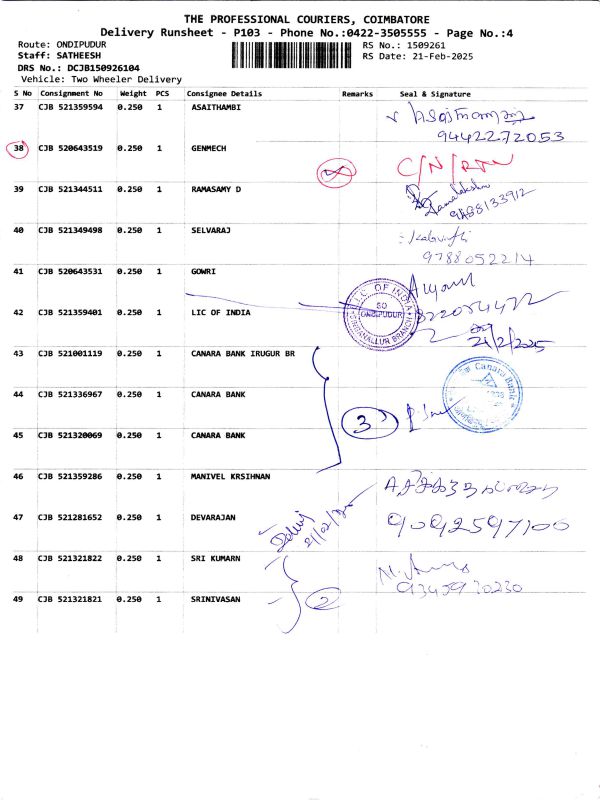 THE PROFESSIONAL COURIERS, COIMBATORE
Delivery Runsheet - P103 - Phone No.:0422-3505555 - Page No.:4
Route: ONDIPUDUR RS No.: 1509261
Staff: SATHEESH RS Date: 21-Feb-2025
DRS No.: DCJB150926104
Vehicle: Two Wheeler Delivery
S No Consignment No Weight PCS Consignee Details Remarks Seal & Signature
37 CJB 521359594 0.250 1 ASAITHAMBI
9442272053
38 CJB 520643519 0.250 1 GENMECH C/N/RTN
39 CJB 521344511 0.250 1 RAMASAMY D
9488133912
40 CJB 521349498 0.250 1 SELVARAJ
9788052214
41 CJB 520643531 0.250 1 GOWRI
42 CJB 521359401 0.250 1 LIC OF INDIA
L.I.C. OF INDIA
SO
ONDIPUDUR
SINGANALLUR BRANCH
21/2/2025
43 CJB 521001119 0.250 1 CANARA BANK IRUGUR BR
Canara Bank
44 CJB 521336967 0.250 1 CANARA BANK
3
45 CJB 521320069 0.250 1 CANARA BANK
46 CJB 521359286 0.250 1 MANIVEL KRSIHNAN
47 CJB 521281652 0.250 1 DEVARAJAN 9092597100
48 CJB 521321822 0.250 1 SRI KUMARN
9345970230
49 CJB 521321821 0.250 1 SRINIVASAN 2